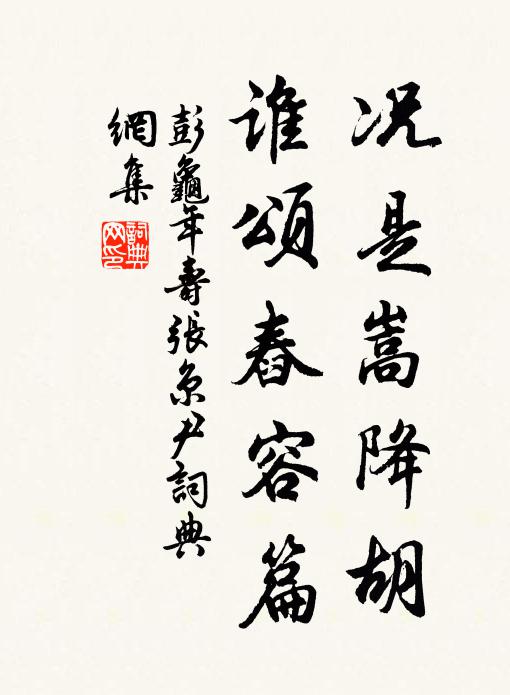 况是嵩降胡
谁頌舂容篇
彭龜年壽張京尹詞典
網集
詞典
网印